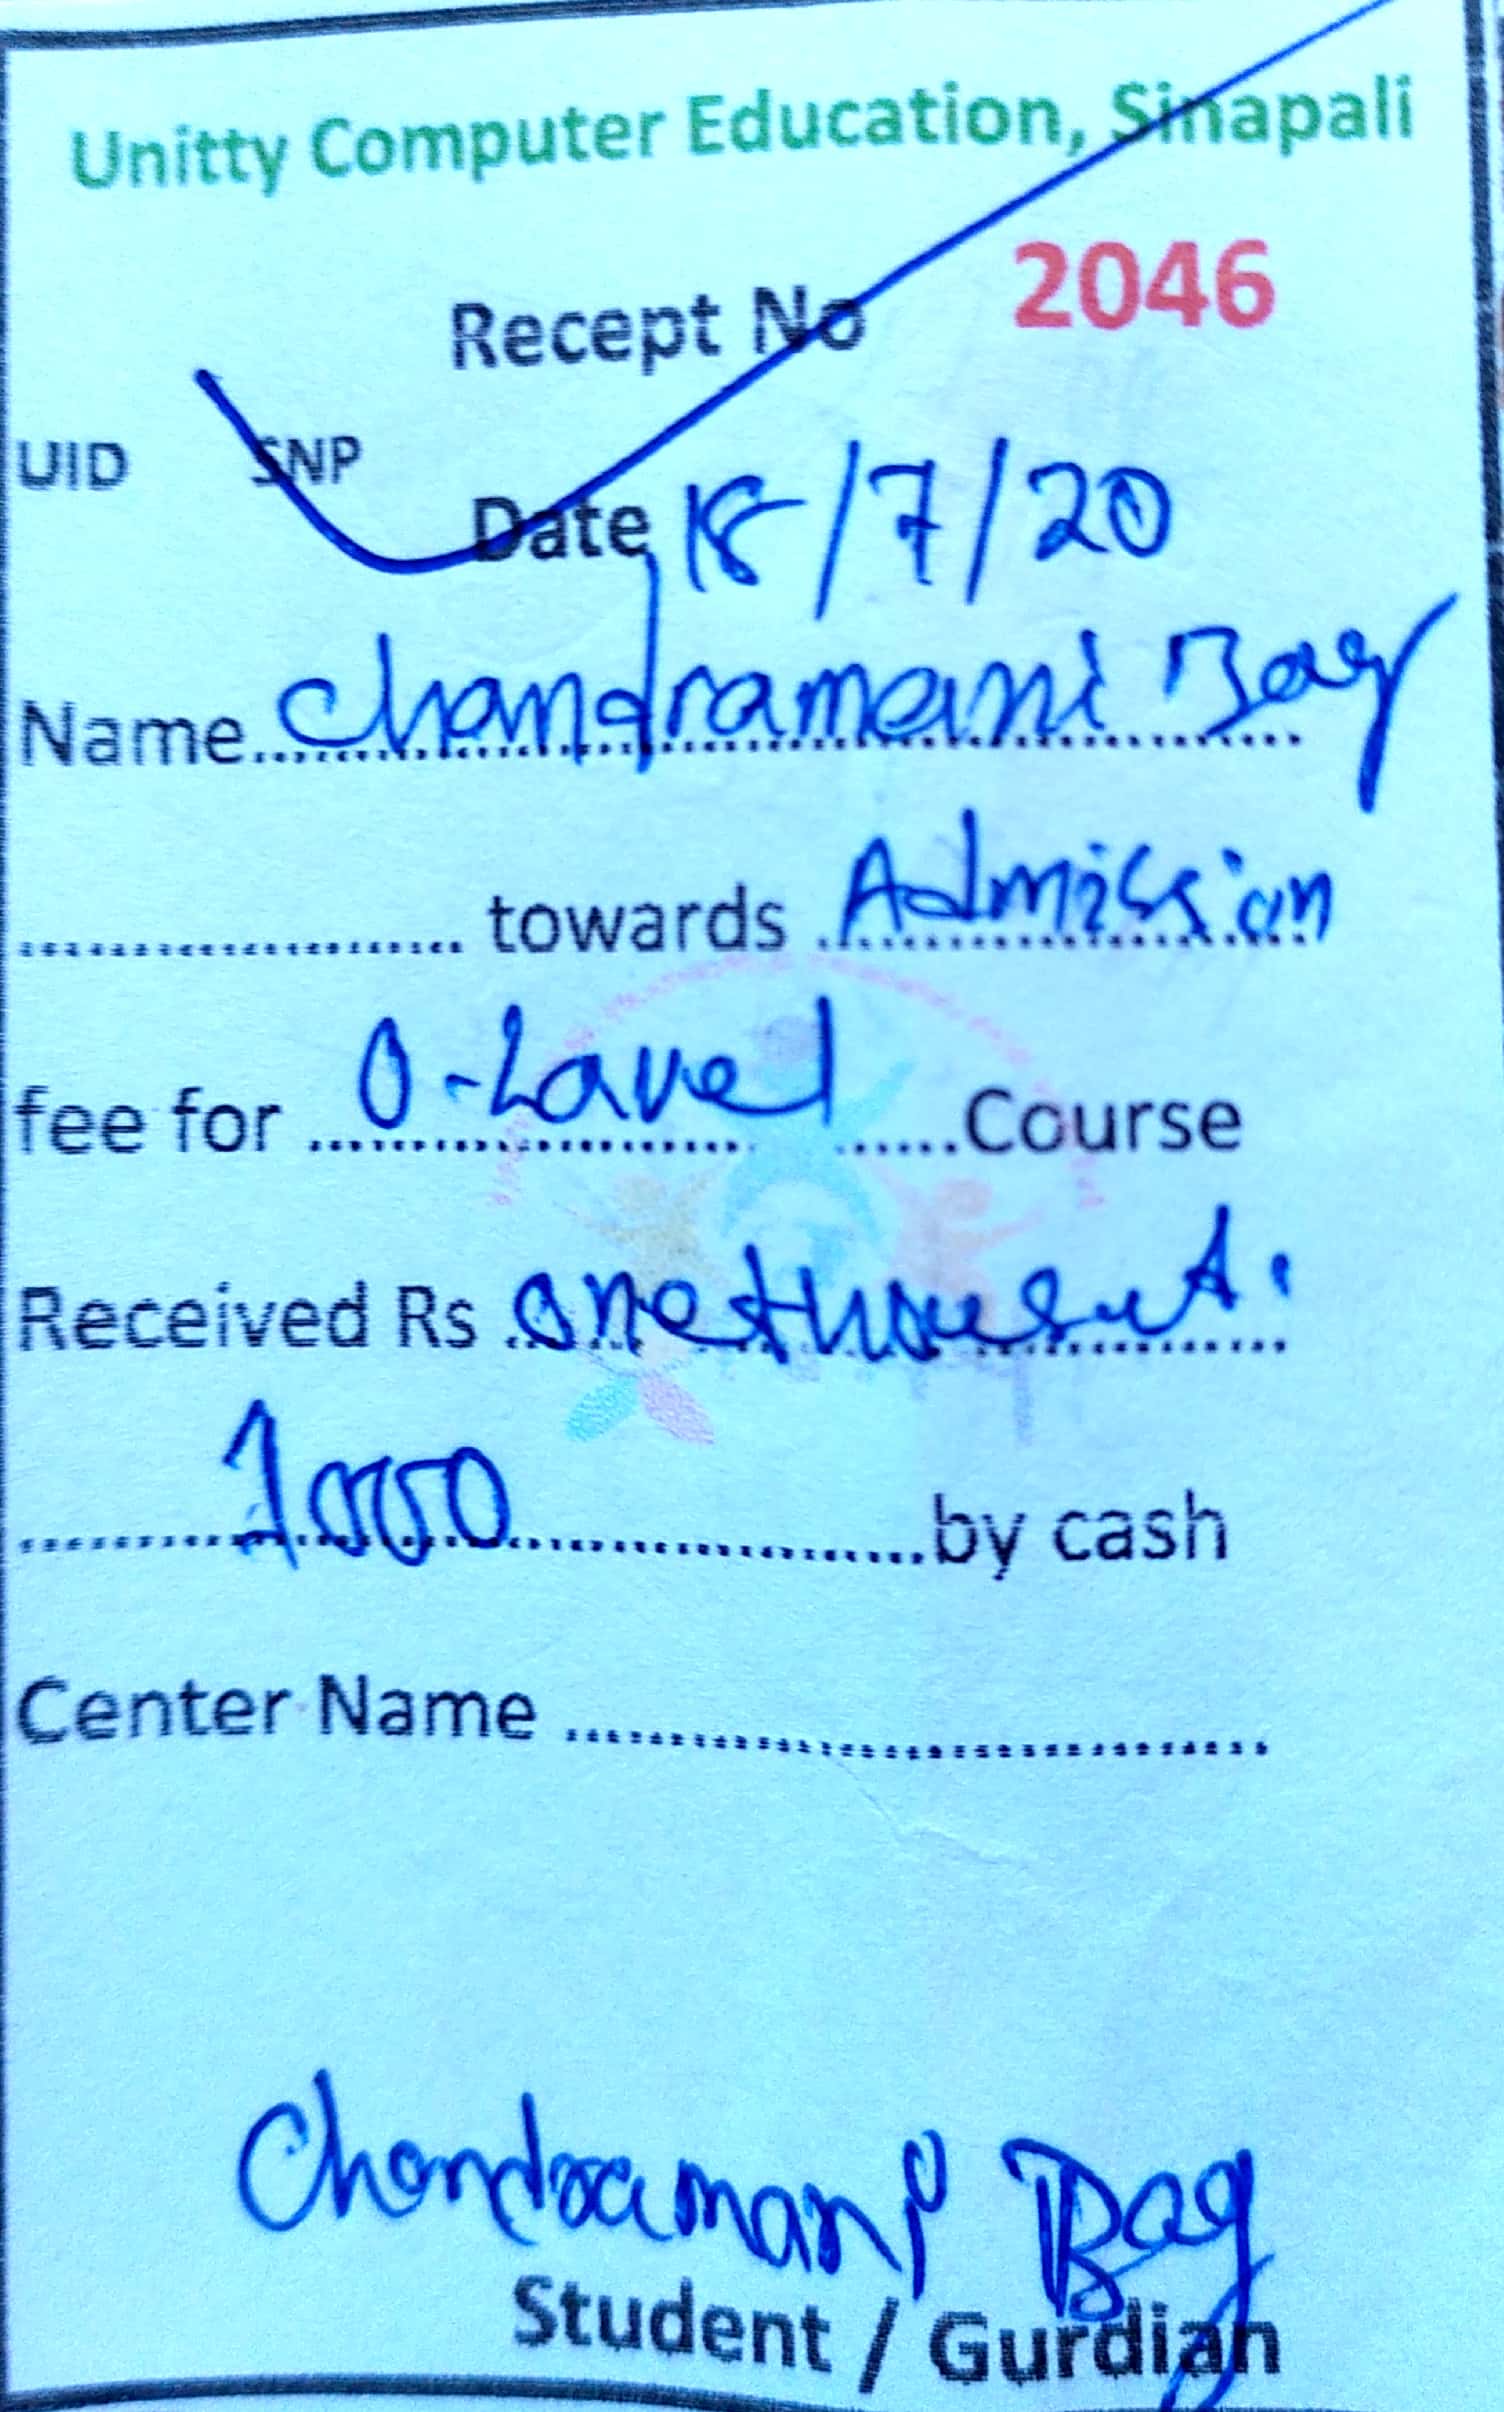 Unitty Computer Education, Sinapali
Recept No 2046
UID SNP
Date 18/7/20
Name chandramani Bag
towards Admission
fee for O-Lavel Course
Received Rs one thousent.
1000 by cash
Center Name
Chandramani Bag
Student / Gurdian